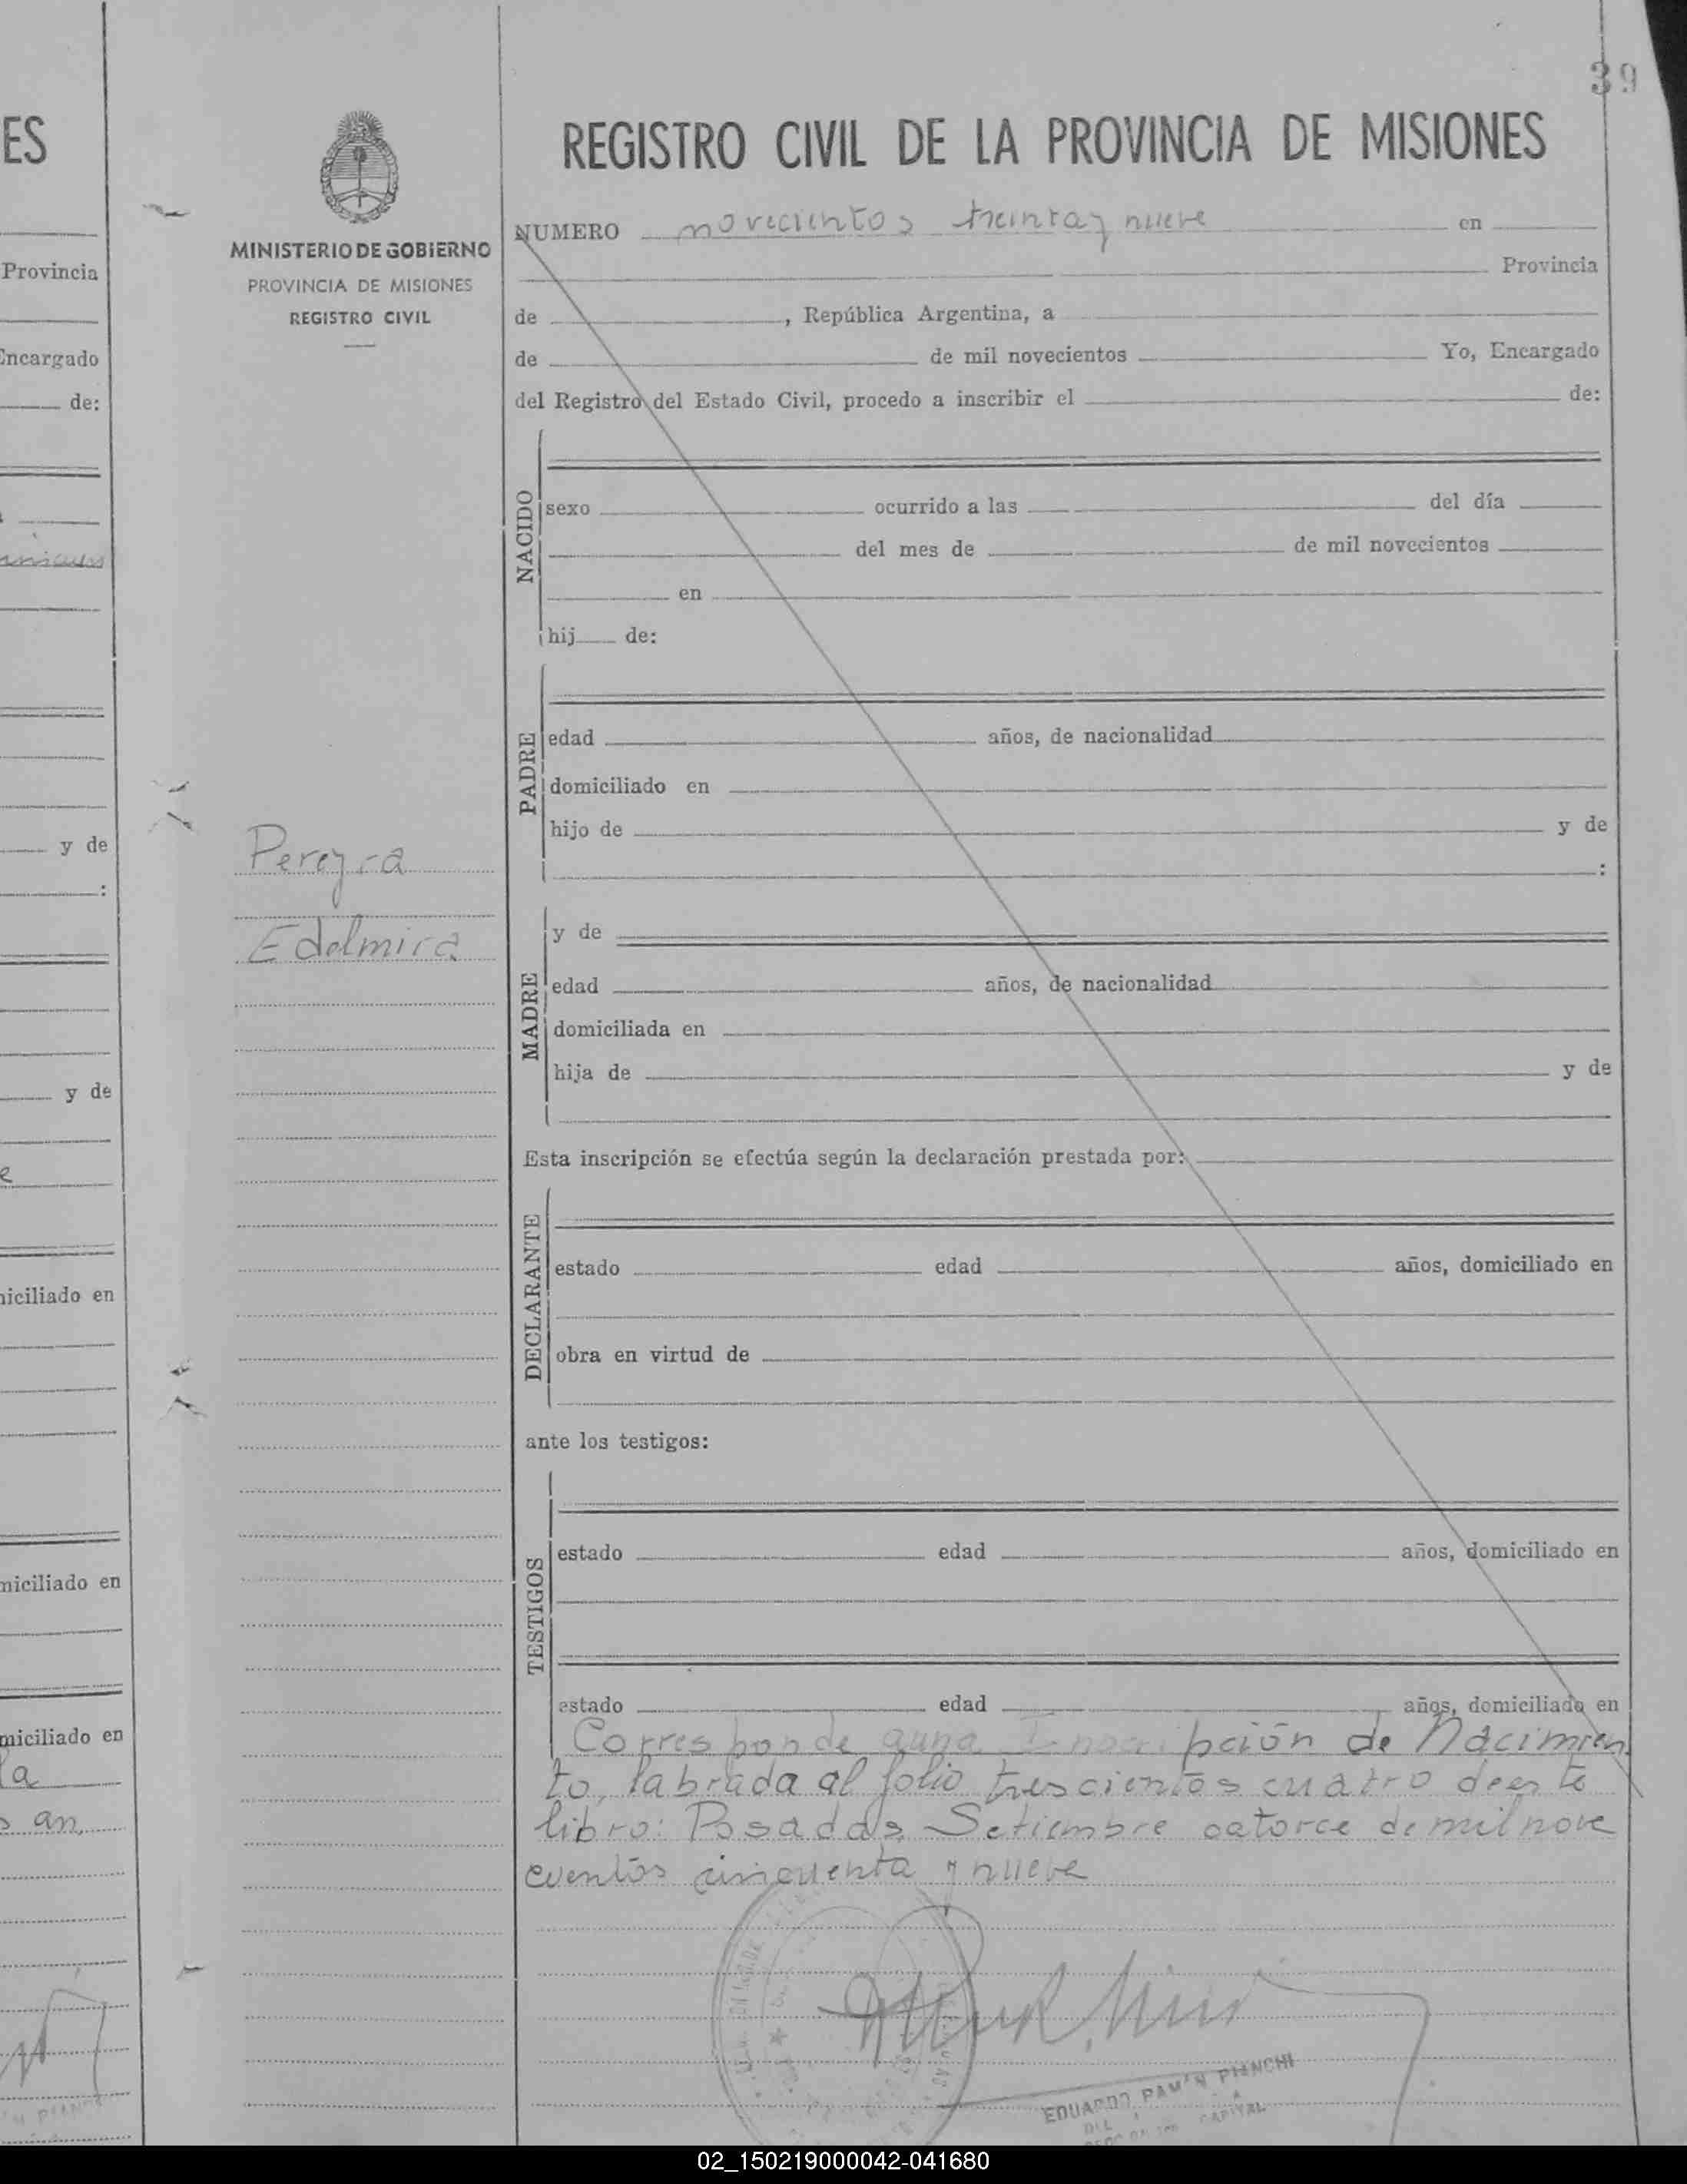 39
ES
Provincia
Encargado
de:
y de
:
y de
e
iciliado en
miciliado en
miciliado en
la
s an
MINISTERIO DE GOBIERNO
PROVINCIA DE MISIONES
REGISTRO CIVIL
Pereyra
Edelmira
REGISTRO CIVIL DE LA PROVINCIA DE MISIONES
NUMERO novecientos treinta y nueve en
Provincia
de , República Argentina, a
de de mil novecientos Yo, Encargado
del Registro del Estado Civil, procedo a inscribir el de:
NACIDO
sexo ocurrido a las del día
del mes de de mil novecientos
en
hij de:
PADRE
edad años, de nacionalidad
domiciliado en
hijo de y de
:
MADRE
y de
edad años, de nacionalidad
domiciliada en
hija de y de
Esta inscripción se efectúa según la declaración prestada por:
DECLARANTE
estado edad años, domiciliado en
obra en virtud de
ante los testigos:
TESTIGOS
estado edad años, domiciliado en
estado edad años, domiciliado en
Corresponde a una Inscripción de Nacimien
to, labrada al folio trescientos cuatro de es te
libro: Posadas, Setiembre catorce de mil nove
cientos cincuenta y nueve
EDUARDO RAMÓN PIANCHI
CAPITAL
02_150219000042-041680